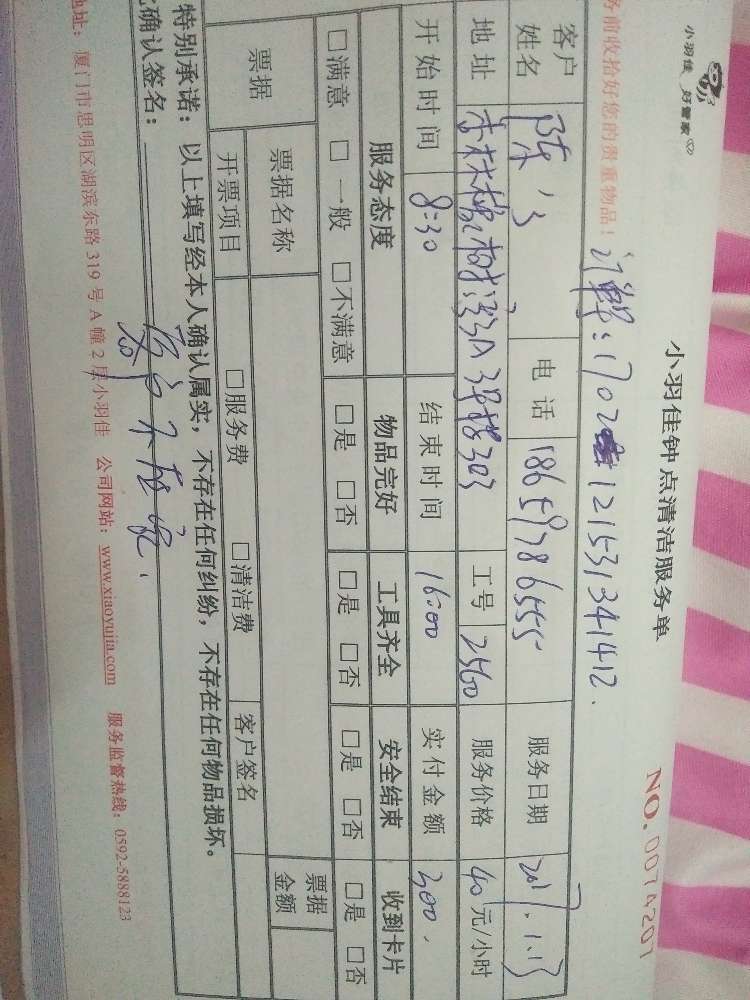 小羽佳 好管家
小羽佳钟点清洁服务单
NO.0074207
务前收拾好您的贵重物品！
1702 121531341412.
客户姓名 陈 电话 18659786555 服务日期 2017.1.13
地址 303 工号 2560 服务价格 40元/小时
开始时间 8:30 结束时间 16:00 实付金额 300.
服务态度 物品完好 工具齐全 安全结束 收到卡片
□满意 □一般 □不满意 □是 □否 □是 □否 □是 □否 □是 □否
票据 票据名称 票据金额
开票项目 □服务费 □清洁费 客户签名
特别承诺：以上填写经本人确认属实，不存在任何纠纷，不存在任何物品损坏。
确认签名：
地址：厦门市思明区湖滨东路319号A幢2层小羽佳 公司网站：www.xiaoyujia.com 服务监督热线：0592-5888123